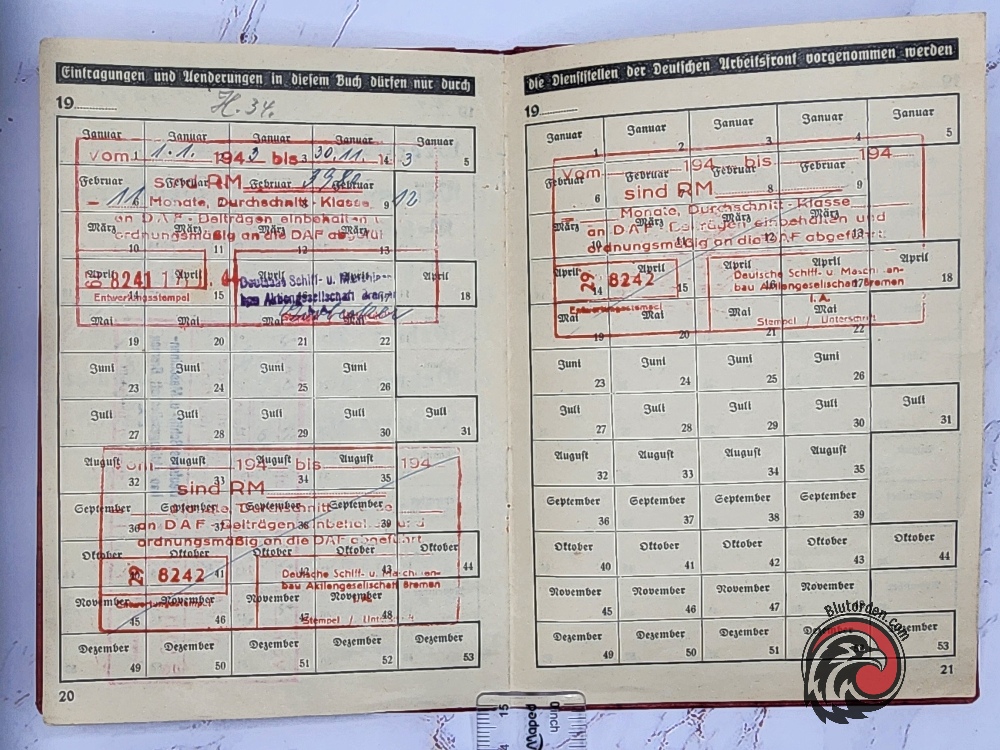 Eintragungen und Aenderungen in diesem Buch dürfen nur durch
19
H. 34.
Januar Januar Januar Januar Januar
1 3 4 5
Vom 1.1. 1943 bis 30.11. 3
Februar Februar Februar Februar
sind RM
8 9
- 11 Monate, Durchschnitt-Klasse 12
an DAF-Beiträgen einbehalten
März März März März
ordnungsmäßig an die DAF abgefüh
10 11 12 13
April April April April April
8241
14 15 18
Entwertungsstempel
Deutsche Schiff- u. Maschinen-
bau Aktiengesellschaft Bremen
Mai Mai Mai Mai
19 20 21 22
Juni Juni Juni Juni
23 24 25 26
Juli Juli Juli Juli Juli
27 28 29 30 31
August August August August
Vom 194 bis 194
32 33 34 35
sind RM
September September September September
Monate, Durchschnitt-Klasse
36 37 38 39
an DAF-Beiträgen einbehalten und
ordnungsmäßig an die DAF abgeführt
Oktober Oktober Oktober Oktober Oktober
40 41 42 43 44
29 8242
Deutsche Schiff- u. Maschinen-
bau Aktiengesellschaft Bremen
November November November November
Entwertungsstempel
45 46 47 48
Stempel / Unterschrift
Dezember Dezember Dezember Dezember Dezember
49 50 51 52 53
20
die Dienststellen der Deutschen Arbeitsfront vorgenommen werden
19
Januar Januar Januar Januar Januar
1 2 3 4 5
Vom 194 bis 194
Februar Februar Februar Februar
6 8 9
sind RM
Monate, Durchschnitt-Klasse
März März März März
an DAF-Beiträgen einbehalten und
10 11 12 13
ordnungsmäßig an die DAF abgeführt
April April April April April
29 8242
14 15 17 18
Deutsche Schiff- u. Maschinen-
bau Aktiengesellschaft Bremen
I. A.
Entwertungsstempel
Mai Mai Mai Mai
Stempel / Unterschrift
19 20 21 22
Juni Juni Juni Juni
23 24 25 26
Juli Juli Juli Juli Juli
27 28 29 30 31
August August August August
32 33 34 35
September September September September
36 37 38 39
Oktober Oktober Oktober Oktober Oktober
40 41 42 43 44
November November November November
45 46 47
Dezember Dezember Dezember Dezember Dezember
49 50 51 53
21
Blutorden.com
15
Maped
inch